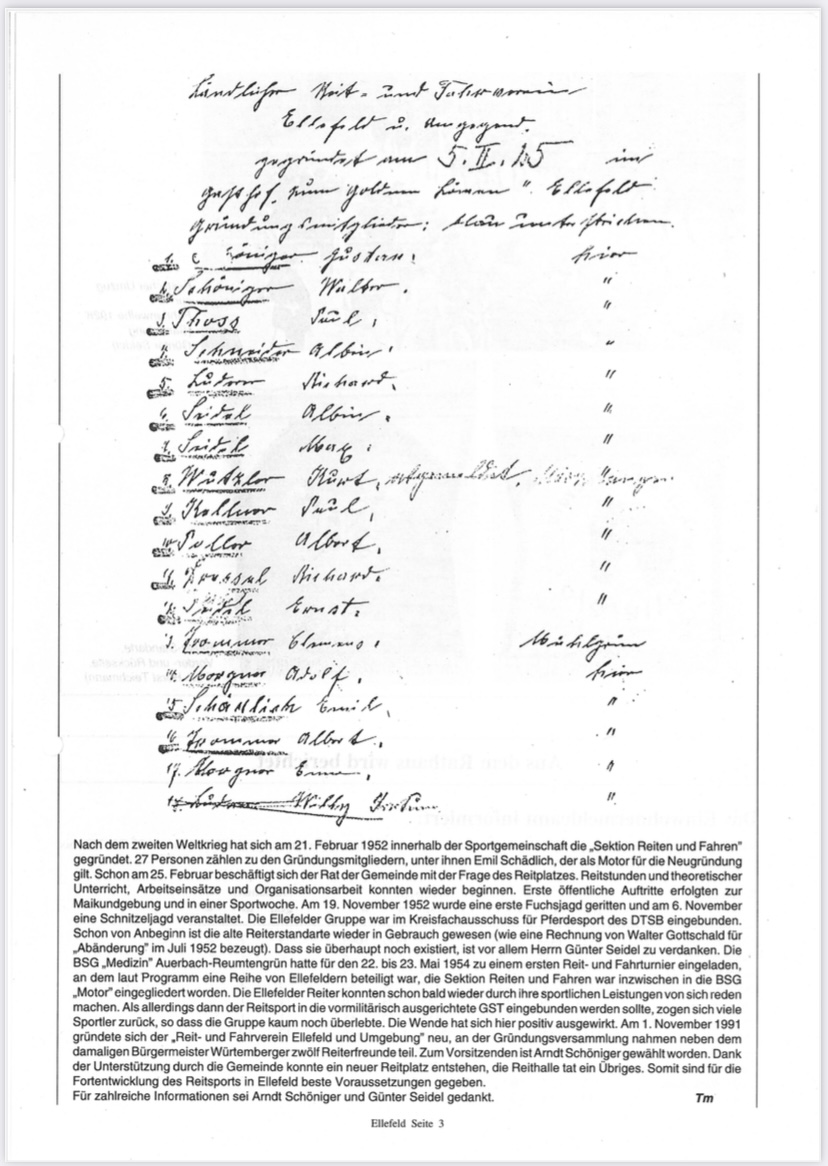 Ländlicher Reit- und Fahrverein
Ellefeld u. Umgegend.
gegründet am 5. II. 25 im
Gasthof "zum Goldnen Löwen" Ellefeld
Gründungsmitglieder: blau unterstrichen.
1. Schöniger Gustav. hier
2. Schöniger Walter. "
3. Thoss Paul. "
4. Schneider Albin. "
5. Richard. "
6. Seidel Albin. "
7. Seidel Max. "
8. Wutzler Kurt, abgemeldet, "
9. Kellner Paul. "
10. Albert. "
11. Dressel Richard. "
12. Seidel Ernst. "
13. Trommer Clemens. Mühlgrün
14. Morgner Adolf. hier
15. Schädlich Emil. "
16. Trommer Albert. "
17. Morgner "
Willy Irrtum. "
Nach dem zweiten Weltkrieg hat sich am 21. Februar 1952 innerhalb der Sportgemeinschaft die „Sektion Reiten und Fahren"
gegründet. 27 Personen zählen zu den Gründungsmitgliedern, unter ihnen Emil Schädlich, der als Motor für die Neugründung
gilt. Schon am 25. Februar beschäftigt sich der Rat der Gemeinde mit der Frage des Reitplatzes. Reitstunden und theoretischer
Unterricht, Arbeitseinsätze und Organisationsarbeit konnten wieder beginnen. Erste öffentliche Auftritte erfolgten zur
Maikundgebung und in einer Sportwoche. Am 19. November 1952 wurde eine erste Fuchsjagd geritten und am 6. November
eine Schnitzeljagd veranstaltet. Die Ellefelder Gruppe war im Kreisfachausschuß für Pferdesport des DTSB eingebunden.
Schon von Anbeginn ist die alte Reiterstandarte wieder in Gebrauch gewesen (wie eine Rechnung von Walter Gottschald für
„Abänderung" im Juli 1952 bezeugt). Dass sie überhaupt noch existiert, ist vor allem Herrn Günter Seidel zu verdanken. Die
BSG „Medizin" Auerbach-Reumtengrün hatte für den 22. bis 23. Mai 1954 zu einem ersten Reit- und Fahrturnier eingeladen,
an dem laut Programm eine Reihe von Ellefeldern beteiligt war, die Sektion Reiten und Fahren war inzwischen in die BSG
„Motor" eingegliedert worden. Die Ellefelder Reiter konnten schon bald wieder durch ihre sportlichen Leistungen von sich reden
machen. Als allerdings dann der Reitsport in die vormilitärisch ausgerichtete GST eingebunden werden sollte, zogen sich viele
Sportler zurück, so dass die Gruppe kaum noch überlebte. Die Wende hat sich hier positiv ausgewirkt. Am 1. November 1991
gründete sich der „Reit- und Fahrverein Ellefeld und Umgebung" neu, an der Gründungsversammlung nahmen neben dem
damaligen Bürgermeister Würtemberger zwölf Reiterfreunde teil. Zum Vorsitzenden ist Arndt Schöniger gewählt worden. Dank
der Unterstützung durch die Gemeinde konnte ein neuer Reitplatz entstehen, die Reithalle tat ein Übriges. Somit sind für die
Fortentwicklung des Reitsports in Ellefeld beste Voraussetzungen gegeben.
Für zahlreiche Informationen sei Arndt Schöniger und Günter Seidel gedankt. Tm
Ellefeld Seite 3